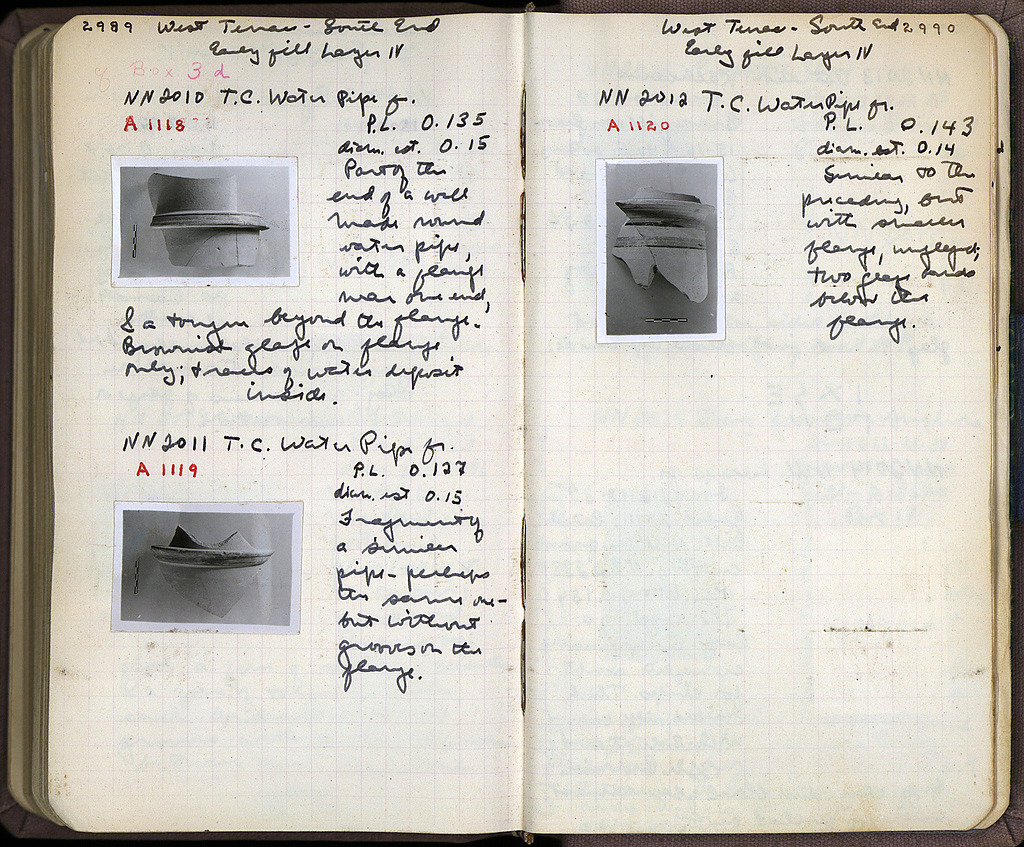 2989 West Terrace - South End
Early fill Layer IV
Box 3 d
NN2010 T.C. Water Pipe fr.
A 1118
P.L. 0.135
diam. est. 0.15
Part of the
end of a well
made round
water pipe,
with a flange
near one end,
& a tongue beyond the flange.
Brownish glaze on flange
only; traces of water deposit
inside.
NN2011 T.C. Water Pipe fr.
A 1119
P.L. 0.137
diam. est 0.15
Fragment of
a similar
pipe - perhaps
the same one -
but without
grooves on the
flange.
West Terrace - South End 2990
Early fill Layer IV
NN 2012 T.C. Water Pipe fr.
A 1120
P.L. 0.143
diam. est. 0.14
Similar to the
preceding, but
with smaller
flange, unglazed;
two glaze bands
below the
flange.